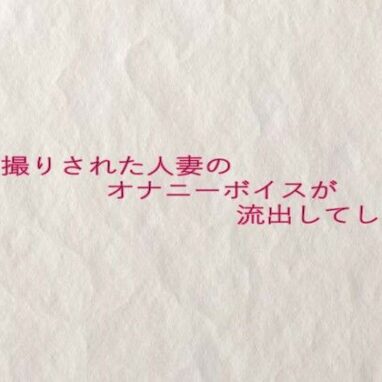 撮りされた人妻の
オナニーボイスが
流出してし